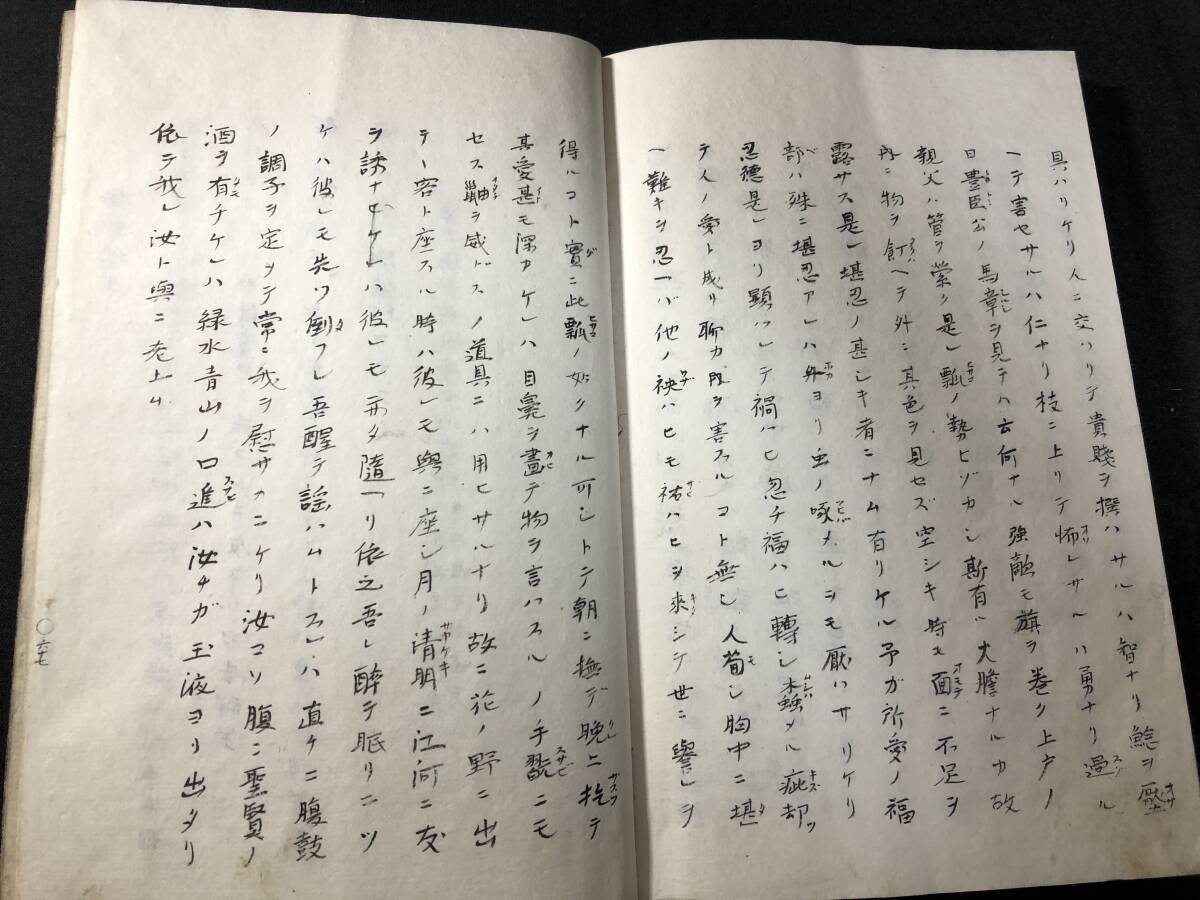 具ハリケリ人ニ交ハリテ貴賤ヲ撰ハサルハ智ナリ鯰ヲ壓
ヘテ害セサルハ仁ナリ枝ニ上リテ怖レサルハ勇ナリ過ル
日豊臣公ノ馬章ヲ見テハ云何ナル強敵モ旗ヲ巻ク上戸ノ
親父ハ管ヲ索ク是レ瓢ノ勢ヒゾカシ斯有ル大膽ナルカ故
内ニ物ヲ飣ヘテ外ニ其色ヲ見セズ空シキ時モ面ニ不足ヲ
露サス是レ堪忍ノ甚シキ者ニナム有リケル予ガ所愛ノ福
部ハ殊ニ堪忍アレハ外ヨリ虫ノ啄メルヲモ厭ハサリケリ
忍徳是レヨリ顕ハレテ禍ハヒ忽チ福ハヒ轉シ蟲メル疵却
テ人ノ愛ト成リ聊カ内ヲ害スルコト無シ人苟モ胸中ニ堪
ヘ難キヲ忍ヘバ他ノ袂ハヒモ祐ハヒヲ来シテ世ニ譽レヲ
得ルコト實ニ此瓢ノ如クナル可シトテ朝ニ撫デ晩ニ拕テ
其愛甚モ深カケレハ目鼻ヲ畫テ物ヲ言ハスルノ手翫ニモ
セス鼬ヲ威ドスノ道具ニハ用ヒサルナリ故ニ花ノ野ニ出
テ一容ト座スル時ハ彼レモ與ニ座シ月ノ清明ニ江河ニ友
ヲ誘ナヒケレハ彼レモ亦タ随ヘリ依之吾レ酔テ眠リニツ
ケハ彼レモ先ツ倒フレ吾醒テ謡ハムトスレハ直ケニ腹鼓
ノ調子ヲ定メテ常ニ我ヲ慰サカニケリ汝コソ腹ニ聖賢ノ
酒ヲ有チケレハ緑水青山ノ口進ハ汝チガ玉液ヨリ出タリ
依テ我レ汝ト與ニ老上ム
〇六七